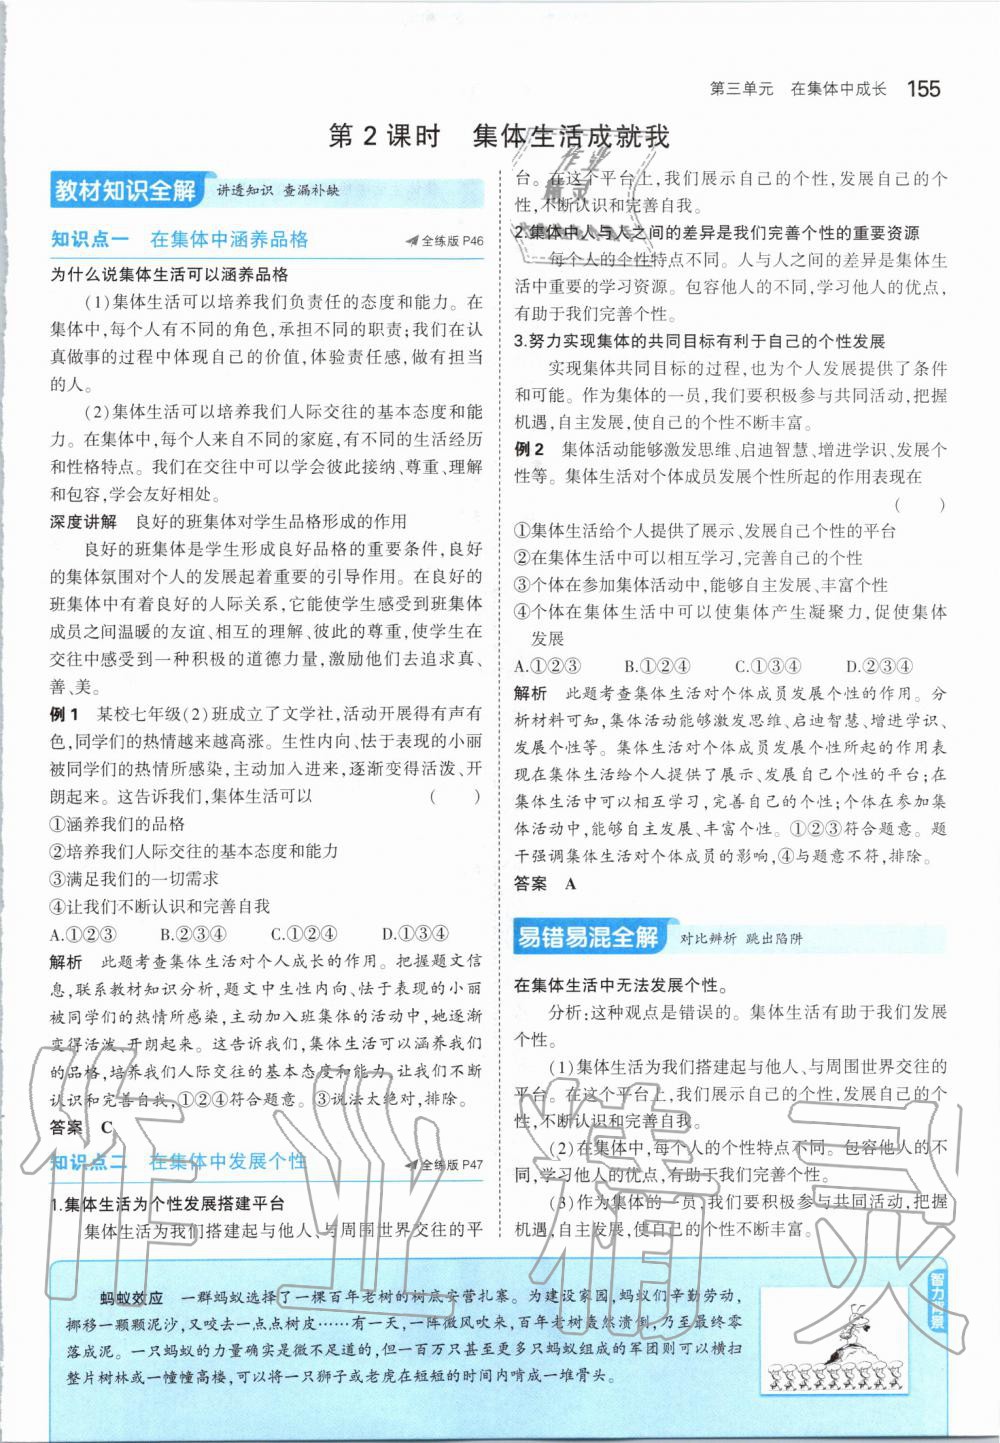 第三单元　在集体中成长　155
第 2 课时　集体生活成就我
教材知识全解　讲透知识　查漏补缺
知识点一　在集体中涵养品格　全练版 P46
为什么说集体生活可以涵养品格
(1)集体生活可以培养我们负责任的态度和能力。在
集体中,每个人有不同的角色,承担不同的职责;我们在认
真做事的过程中体现自己的价值,体验责任感,做有担当
的人。
(2)集体生活可以培养我们人际交往的基本态度和能
力。在集体中,每个人来自不同的家庭,有不同的生活经历
和性格特点。我们在交往中可以学会彼此接纳、尊重、理解
和包容,学会友好相处。
深度讲解　良好的班集体对学生品格形成的作用
良好的班集体是学生形成良好品格的重要条件,良好
的集体氛围对个人的发展起着重要的引导作用。在良好的
班集体中有着良好的人际关系,它能使学生感受到班集体
成员之间温暖的友谊、相互的理解、彼此的尊重,使学生在
交往中感受到一种积极的道德力量,激励他们去追求真、
善、美。
例 1　某校七年级(2)班成立了文学社,活动开展得有声有
色,同学们的热情越来越高涨。生性内向、怯于表现的小丽
被同学们的热情所感染,主动加入进来,逐渐变得活泼、开
朗起来。这告诉我们,集体生活可以　(　　)
①涵养我们的品格
②培养我们人际交往的基本态度和能力
③满足我们的一切需求
④让我们不断认识和完善自我
A.①②③　B.②③④　C.①②④　D.①③④
解析　此题考查集体生活对个人成长的作用。把握题文信
息,联系教材知识分析,题文中生性内向、怯于表现的小丽
被同学们的热情所感染,主动加入班集体的活动中,她逐渐
变得活泼、开朗起来。这告诉我们,集体生活可以涵养我们
的品格,培养我们人际交往的基本态度和能力,让我们不断
认识和完善自我,①②④符合题意。③说法太绝对,排除。
答案　C
知识点二　在集体中发展个性　全练版 P47
1.集体生活为个性发展搭建平台
集体生活为我们搭建起与他人、与周围世界交往的平
台。在这个平台上,我们展示自己的个性,发展自己的个
性,不断认识和完善自我。
2.集体中人与人之间的差异是我们完善个性的重要资源
每个人的个性特点不同。人与人之间的差异是集体生
活中重要的学习资源。包容他人的不同,学习他人的优点,
有助于我们完善个性。
3.努力实现集体的共同目标有利于自己的个性发展
实现集体共同目标的过程,也为个人发展提供了条件
和可能。作为集体的一员,我们要积极参与共同活动,把握
机遇,自主发展,使自己的个性不断丰富。
例 2　集体活动能够激发思维、启迪智慧、增进学识、发展个
性等。集体生活对个体成员发展个性所起的作用表现在
(　　)
①集体生活给个人提供了展示、发展自己个性的平台
②在集体生活中可以相互学习,完善自己的个性
③个体在参加集体活动中,能够自主发展、丰富个性
④个体在集体生活中可以使集体产生凝聚力,促使集体
发展
A.①②③　B.①②④　C.①③④　D.②③④
解析　此题考查集体生活对个体成员发展个性的作用。分
析材料可知,集体活动能够激发思维、启迪智慧、增进学识、
发展个性等。集体生活对个体成员发展个性所起的作用表
现在集体生活给个人提供了展示、发展自己个性的平台;在
集体生活中可以相互学习,完善自己的个性;个体在参加集
体活动中,能够自主发展、丰富个性。①②③符合题意。题
干强调集体生活对个体成员的影响,④与题意不符,排除。
答案　A
易错易混全解　对比辨析　跳出陷阱
在集体生活中无法发展个性。
分析:这种观点是错误的。集体生活有助于我们发展
个性。
(1)集体生活为我们搭建起与他人、与周围世界交往的
平台。在这个平台上,我们展示自己的个性,发展自己的个
性,不断认识和完善自我。
(2)在集体中,每个人的个性特点不同。包容他人的不
同,学习他人的优点,有助于我们完善个性。
(3)作为集体的一员,我们要积极参与共同活动,把握
机遇,自主发展,使自己的个性不断丰富。
蚂蚁效应　一群蚂蚁选择了一棵百年老树的树底安营扎寨。为建设家园,蚂蚁们辛勤劳动,
挪移一颗颗泥沙,又咬去一点点树皮……有一天,一阵微风吹来,百年老树轰然溃倒,乃至最终零
落成泥。一只蚂蚁的力量确实是微不足道的,但一百万只甚至更多只蚂蚁组成的军团则可以横扫
整片树林或一幢幢高楼,可以将一只狮子或老虎在短短的时间内啃成一堆骨头。
作业精灵
作业精灵